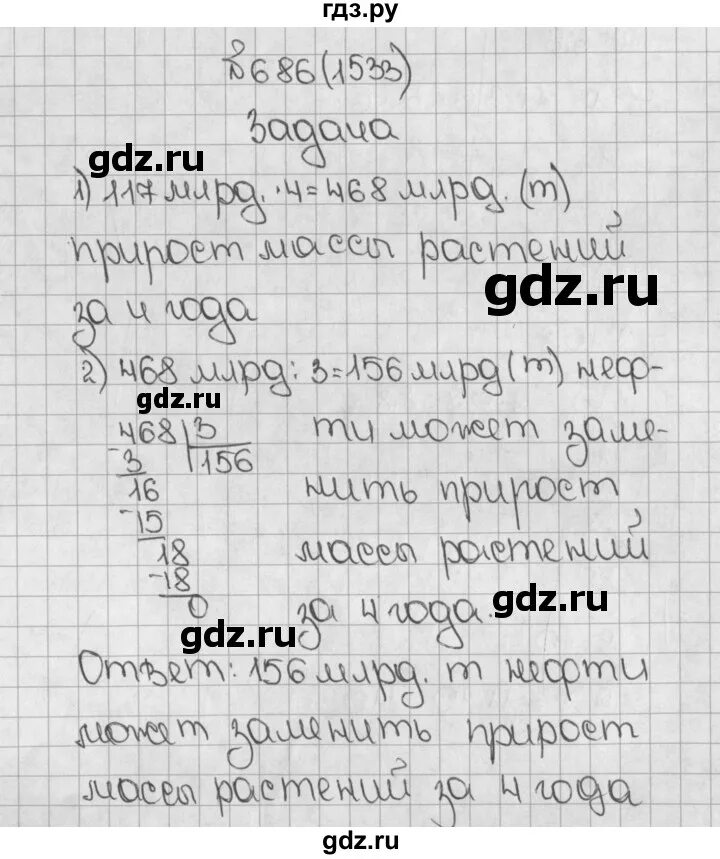 гдз.ру
№686(1533)
Задача
gdz.ru
1) 117 млрд. · 4 = 468 млрд. (т)
прирост массы растений
gdz.ru
за 4 года
2) 468 млрд : 3 = 156 млрд (т) неф-
gdz.ru
468 3 ти может заме-
-3 156
16 нить прирост
-15
18 массы растений
-18
0 за 4 года.
gdz.ru
gdz.ru
Ответ: 156 млрд. т нефти
может заменить прирост
gdz.ru
массы растений за 4 года
gdz.ru